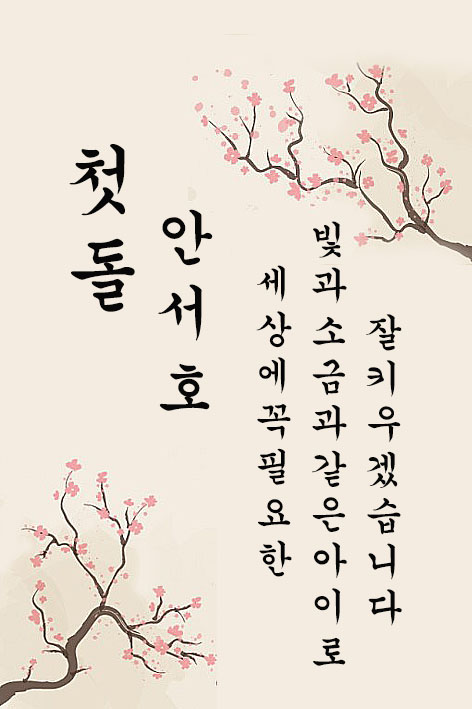 첫돌
안서호
세상에꼭필요한
빛과소금과같은아이로
잘키우겠습니다